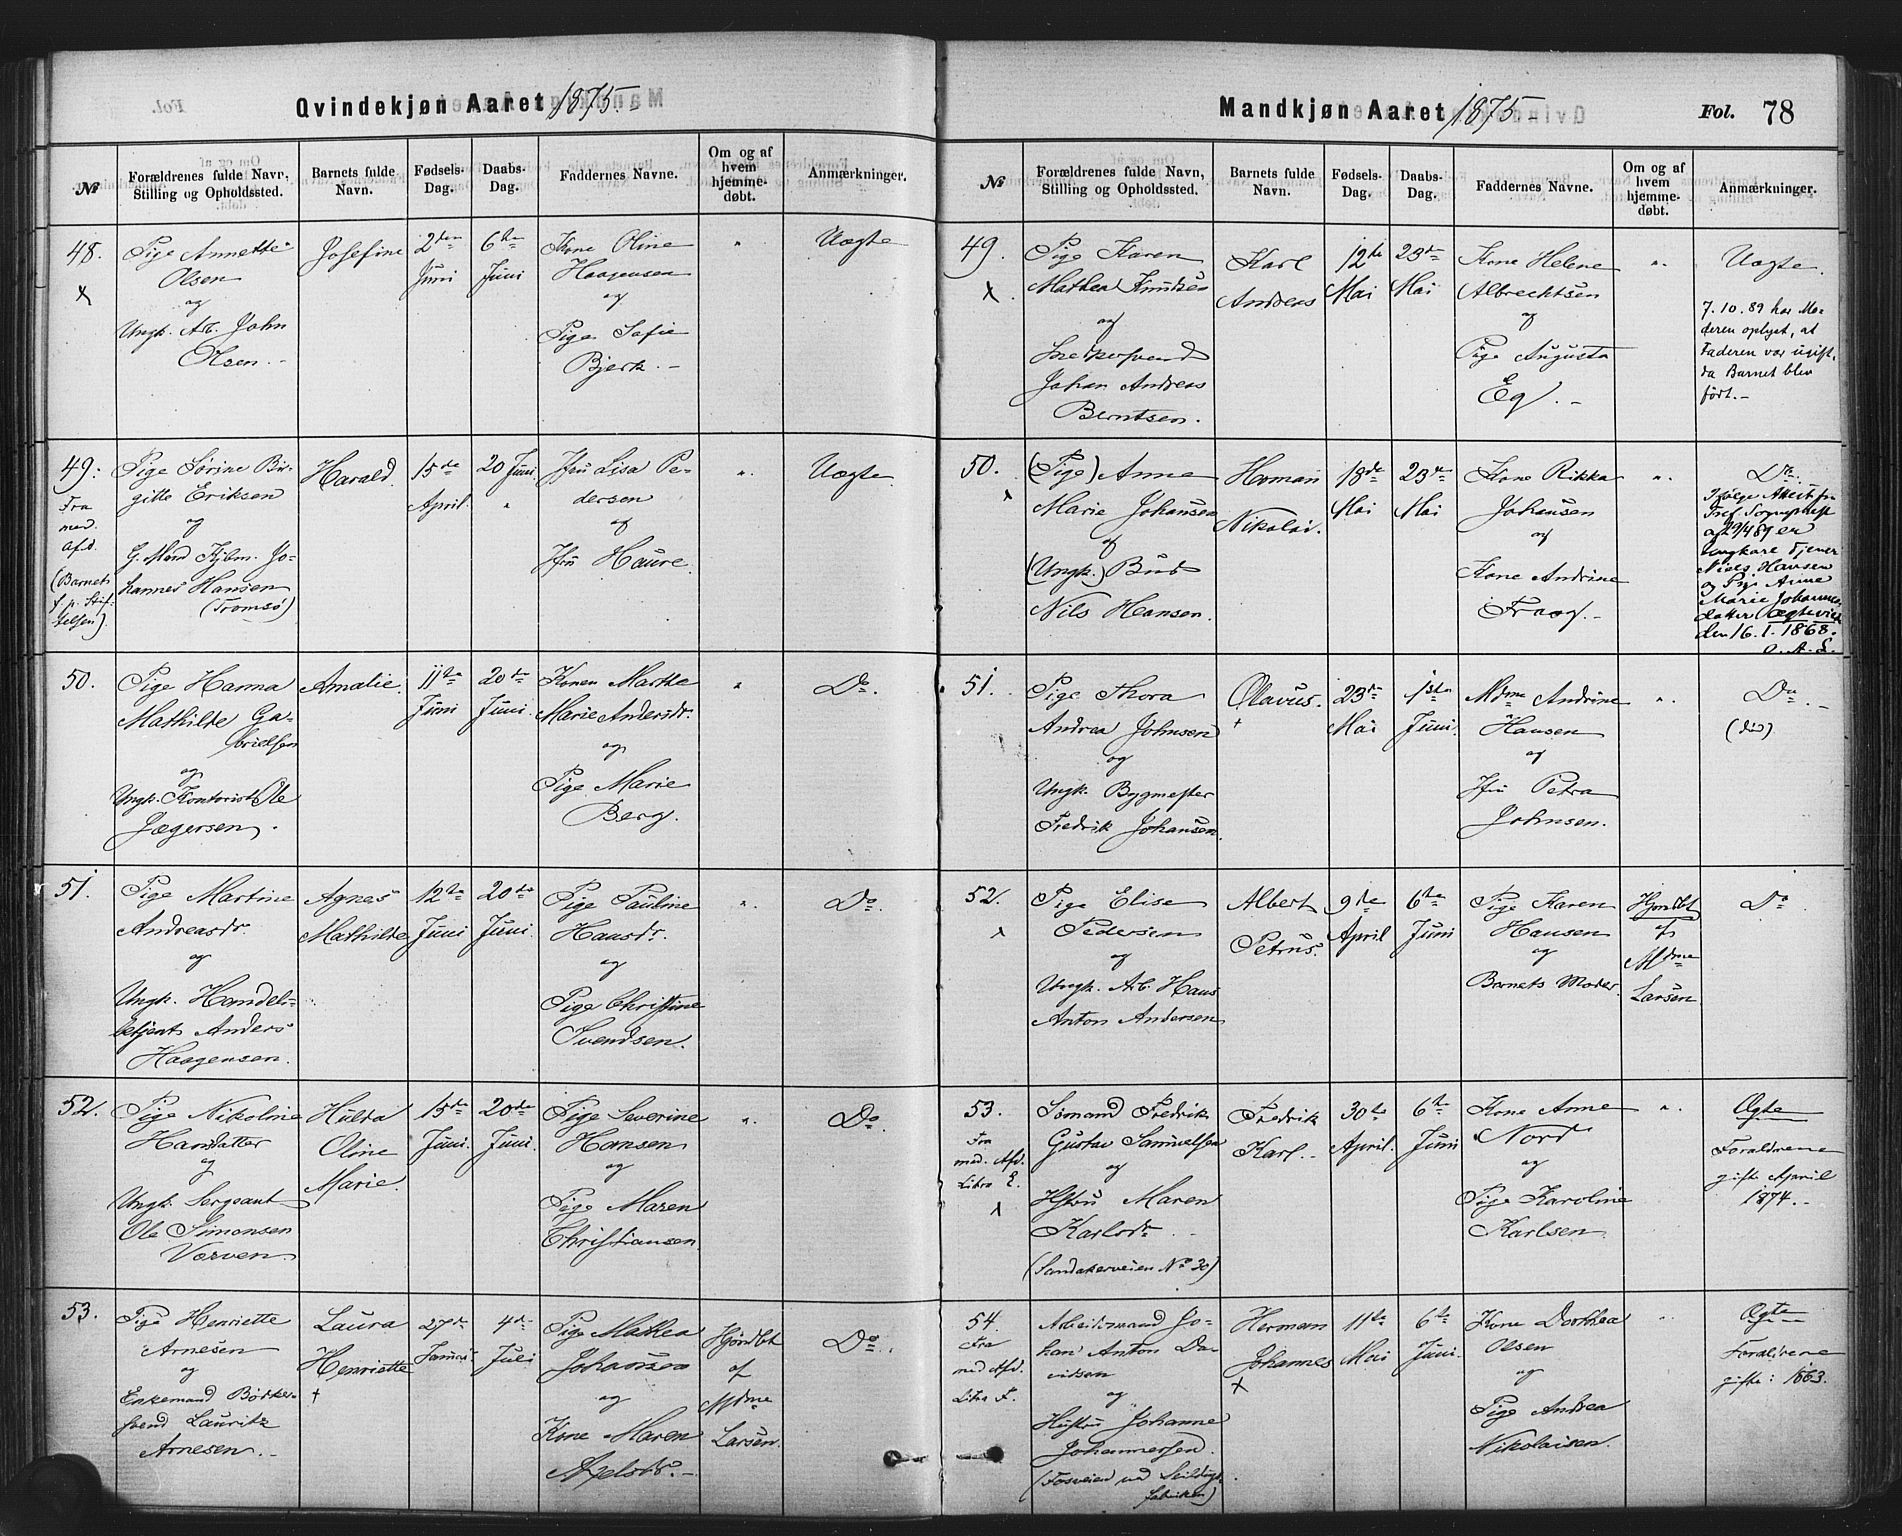 Qvindekjøn Aaret 1875.
№
Forældrenes fulde Navn,
Stilling og Opholdssted.
Barnets fulde
Navn.
Fødsels-
Dag.
Daabs-
Dag.
Faddernes Navne.
Om og af
hvem
hjemme-
døbt.
Anmærkninger.
48.
x
Pige Annette
Olsen
og
Ungk. Arb. John
Olsen.
Josefine
2den
Juni
6te
Juni
Kone Oline
Haagensen
og
Pige Sofie
Bjerk.
"
Uægte
49.
Fra
med.
Afd.
(Barnets
f. p. Stif-
telsen).
Pige Sørine Bir-
gitte Eriksen
og
G. Mand Kjbm. Jo-
hannes Hansen
(Tromsø)
Harald.
15de
April.
20 Juni.
"
Jfru Lisa Pe-
dersen
og
Jfru Haure.
"
Uægte
50.
Pige Hanna
Mathilde Ga-
brielsen
og
Ungk. Kontorist Ole
Jægersen.
Amalie.
11te
Juni
20de
Juni.
Konen Marthe
Marie Andersdr.
og
Pige Marie
Berg.
"
Do.
51.
Pige Martine
Andreasdr.
og
Ungk. Handels-
betjent Anders
Haagensen.
Agnes
Mathilde
12te
Juni
20de
Juni.
Pige Pauline
Hansdr.
og
Pige Christine
Svendsen.
"
Do.
52.
Pige Nikoline
Hansdatter
og
Ungk. Sergeant
Ole Simonsen
Vorven.
Hulda
Oline
Marie.
15de
Juni.
20de
Juni.
Pige Severine
Hansen
og
Pige Maren
Christiansen.
"
Do.
53.
Pige Henriette
Arnesen
og
Enkemand Bødker-
svend Lauritz
Arnesen.
Laura
Henriette
+
27de
Januar.
4de
Juli
Pige Mathea
Johansen
og
Kone Maren
Axelsdr.
Hjmdbt
af
Mdme
Larsen.
Do.
Mandkjøn Aaret 1875
Fol. 78
№
Forældrenes fulde Navn,
Stilling og Opholdssted.
Barnets fulde
Navn.
Fødsels-
Dag.
Daabs-
Dag.
Faddernes Navne.
Om og af
hvem
hjemme-
døbt.
Anmærkninger.
49.
x
Pige Karen
Mathea Knudsen
og
Snedkersvend
Johan Andreas
Berntsen.
Karl
Andreas
12te
Mai
23de
Mai
Kone Helene
Albrechtsen
og
Pige Augusta
Eg.
"
Uægte.
7.10.89 har Mo-
deren oplyst, at
Faderen var ugift,
da Barnet blev
født.
50.
(Pige) Anne
Marie Johansen
og
(Ungk.) Bud
Nils Hansen.
Herman
Nikolai.
18de
Mai
23de
Mai
Kone Rikka
Johansen
og
Kone Andrine
Fraag.
"
Do.
Ifølge Attest fra
Tref. Sogneprest
af 29/4 89 er
Ungkarl Tjener
Niels Hansen
og Pige Anne
Marie Johannes-
datter ægteviet
den 16.1.1868.
51.
Pige Thora
Andrea Johnsen
og
Ungk. Bygmester
Fredrik Johansen.
Olavus.
+
23de
Mai
1ste
Juni.
Mdme Andrine
Hansen
og
Jfru Petra
Johnsen.
"
Do.
(død)
52.
x
Pige Elise
Pedersen
og
Ungk. Arb. Hans
Anton Andersen
Albert
Petrus.
9de
April
6te
Juni
Pige Karen
Hansen
og
Barnets Moder.
Hjmdbt
af
Mdme
Larsen
Do
53.
Fra
med. Afd.
Litra E.
x
Sømand Fredrik
Gustav Samuelsen
og
Hstru Maren
Karlsdr.
(Sandakerveien No 30)
Fredrik
Karl.
30te
April.
6te
Juni
Kone Anne
Nord
og
Pige Karoline
Karlsen.
"
Ægte
Forældrene
gifte April
1874.
54.
Fra
med. Afd.
Litra F.
Arbeidsmand Jo-
han Anton Da-
vidsen
og
Hustru Johanne
Johannessen.
(Fosveien ved Seildugs-
fabriken)
Herman
Johannes
x
11te
Mai
6te
Juni.
Kone Dorthea
Olsen
og
Pige Andrea
Nikolaisen.
"
Ægte
Forældrene
gifte: 1863.